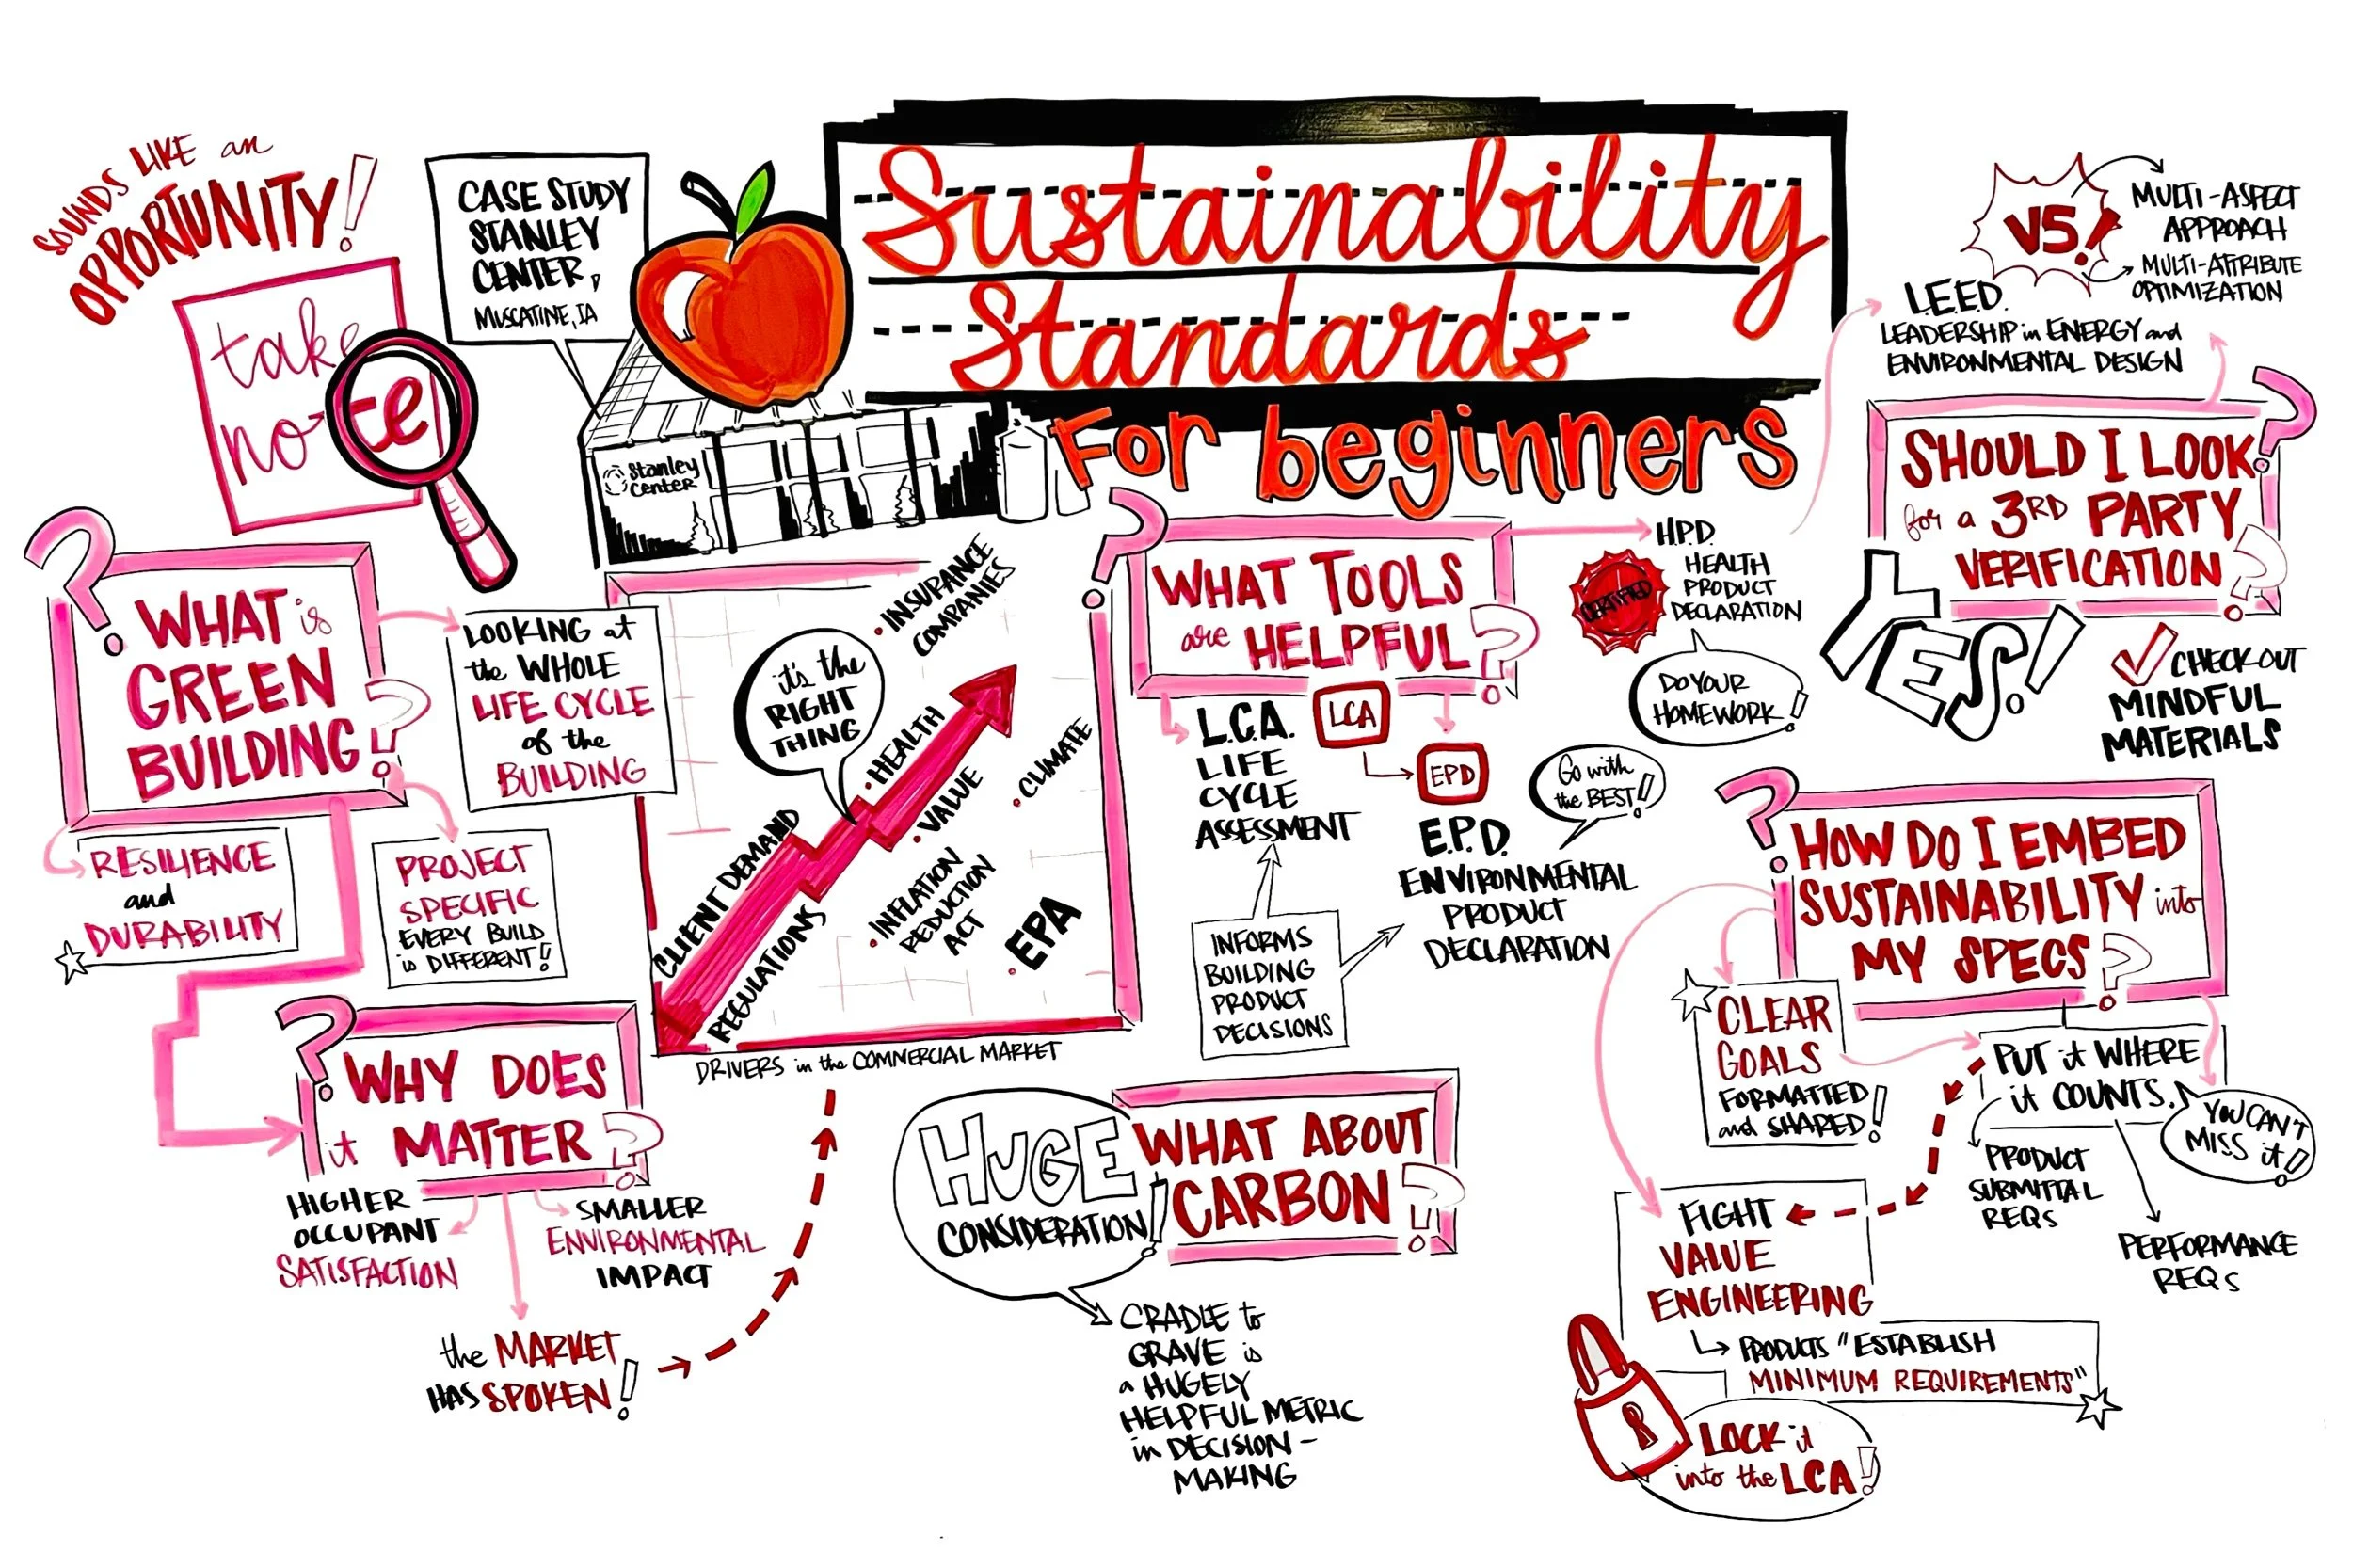 SOUNDS LIKE an
OPPORTUNITY!
take
note!
CASE STUDY
STANLEY
CENTER,
MUSCATINE, IA
Stanley
Center
Sustainability
Standards
For beginners
WHAT is
GREEN
BUILDING?
LOOKING at
the WHOLE
LIFE CYCLE
of the
BUILDING
RESILIENCE
and
DURABILITY
PROJECT
SPECIFIC
EVERY BUILD
is DIFFERENT!
WHY DOES
it MATTER?
HIGHER
OCCUPANT
SATISFACTION
SMALLER
ENVIRONMENTAL
IMPACT
the MARKET
HAS SPOKEN!
it's the
RIGHT
THING
CLIENT DEMAND
REGULATIONS
• HEALTH
• VALUE
• INSURANCE
COMPANIES
• CLIMATE
• INFLATION
REDUCTION
ACT
• EPA
DRIVERS in the COMMERCIAL MARKET
WHAT TOOLS
are HELPFUL?
H.P.D.
HEALTH
PRODUCT
DECLARATION
CERTIFIED
DO YOUR
HOMEWORK!
L.C.A.
LIFE
CYCLE
ASSESSMENT
LCA
EPD
Go with
the BEST!
E.P.D.
ENVIRONMENTAL
PRODUCT
DECLARATION
INFORMS
BUILDING
PRODUCT
DECISIONS
WHAT ABOUT
CARBON?
HUGE
CONSIDERATION!
CRADLE to
GRAVE is
a HUGELY
HELPFUL METRIC
in DECISION-
MAKING
V5!
MULTI-ASPECT
APPROACH
MULTI-ATTRIBUTE
OPTIMIZATION
L.E.E.D.
LEADERSHIP in ENERGY and
ENVIRONMENTAL DESIGN
SHOULD I LOOK
for a 3RD PARTY
VERIFICATION?
YES!
CHECK OUT
MINDFUL
MATERIALS
HOW DO I EMBED
SUSTAINABILITY into
MY SPECS?
CLEAR
GOALS
FORMATTED
and SHARED!
PUT it WHERE
it COUNTS.
YOU CAN'T
MISS it!
PRODUCT
SUBMITTAL
REQS
PERFORMANCE
REQS
FIGHT
VALUE
ENGINEERING
PRODUCTS "ESTABLISH
MINIMUM REQUIREMENTS"
LOCK it
into the LCA!